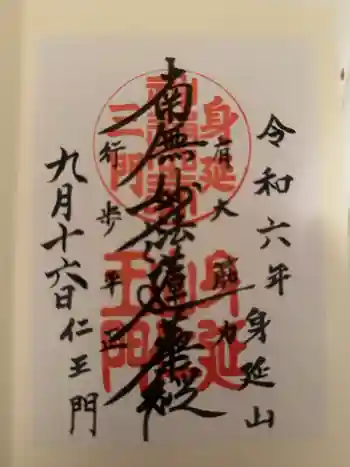 令和六年
身延山
有大筋力
南無妙法蓮華経
行歩平正
九月十六日
仁王門
身延
三門
身延
王門